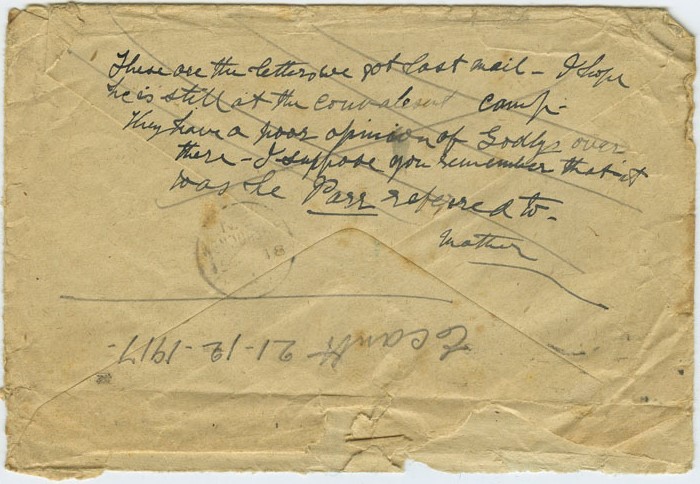 These are the letters we got last mail - I hope
he is still at the convalesent camp.
They have a poor opinion of Godlys over
there - I suppose you remember that it
was he Parr referred to -
Mother
18
21-12-1917-